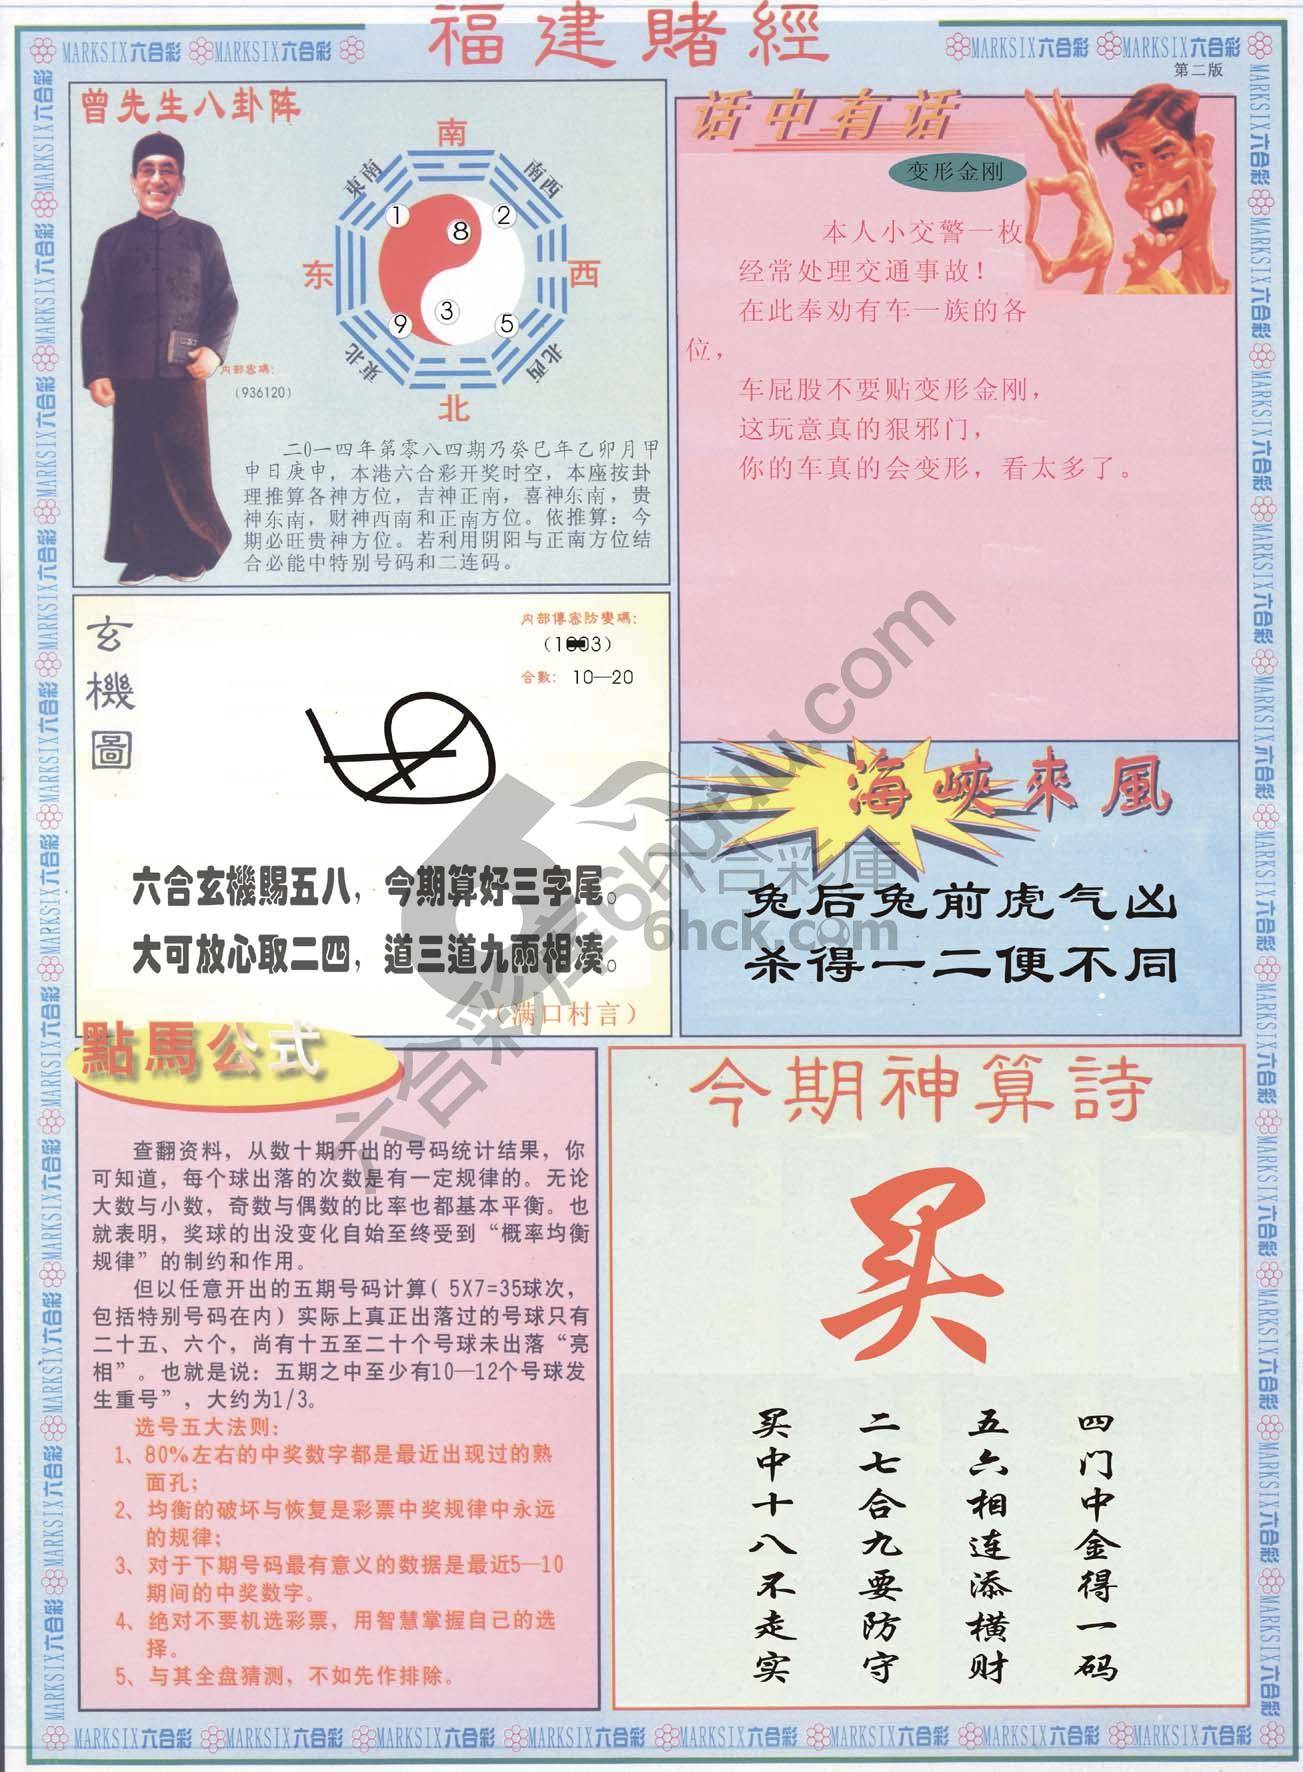 福建賭經
MARKSIX六合彩 MARKSIX六合彩
MARKSIX六合彩 MARKSIX六合彩
第二版
曾先生八卦阵
南
東南
南西
东
西
東北
北西
北
1
8
2
3
9
5
内部密碼:
(936120)
二0一四年第零八四期乃癸巳年乙卯月甲
申日庚申，本港六合彩开奖时空，本座按卦
理推算各神方位，吉神正南，喜神东南，贵
神东南，财神西南和正南方位。依推算：今
期必旺贵神方位。若利用阴阳与正南方位结
合必能中特别号码和二连码。
话中有话
变形金刚
本人小交警一枚
经常处理交通事故！
在此奉劝有车一族的各
位，
车屁股不要贴变形金刚，
这玩意真的狠邪门，
你的车真的会变形，看太多了。
玄機圖
内部傳密防變碼:
合數: 10—20
六合玄機賜五八，今期算好三字尾。
大可放心取二四，道三道九兩相凑。
（满口村言）
海峽來風
兔后兔前虎气凶
杀得一二便不同
點馬公式
查翻资料，从数十期开出的号码统计结果，你
可知道，每个球出落的次数是有一定规律的。无论
大数与小数，奇数与偶数的比率也都基本平衡。也
就表明，奖球的出没变化自始至终受到“概率均衡
规律”的制约和作用。
但以任意开出的五期号码计算( 5X7=35球次，
包括特别号码在内）实际上真正出落过的号球只有
二十五、六个，尚有十五至二十个号球未出落“亮
相”。也就是说：五期之中至少有10—12个号球发
生重号”，大约为1/3。
选号五大法则：
1、80%左右的中奖数字都是最近出现过的熟
面孔；
2、均衡的破坏与恢复是彩票中奖规律中永远
的规律；
3、对于下期号码最有意义的数据是最近5—10
期间的中奖数字。
4、绝对不要机选彩票，用智慧掌握自己的选
择。
5、与其全盘猜测，不如先作排除。
今期神算詩
买
买中十八不走实
二七合九要防守
五六相连添横财
四门中金得一码
六合彩库6huuu.com
六合彩庫
6hck.com
MARKSIX六合彩 MARKSIX六合彩 MARKSIX六合彩 MARKSIX六合彩 MARKSIX六合彩 MARKSIX六合彩 MARKSIX六合彩 MARKSIX六合彩